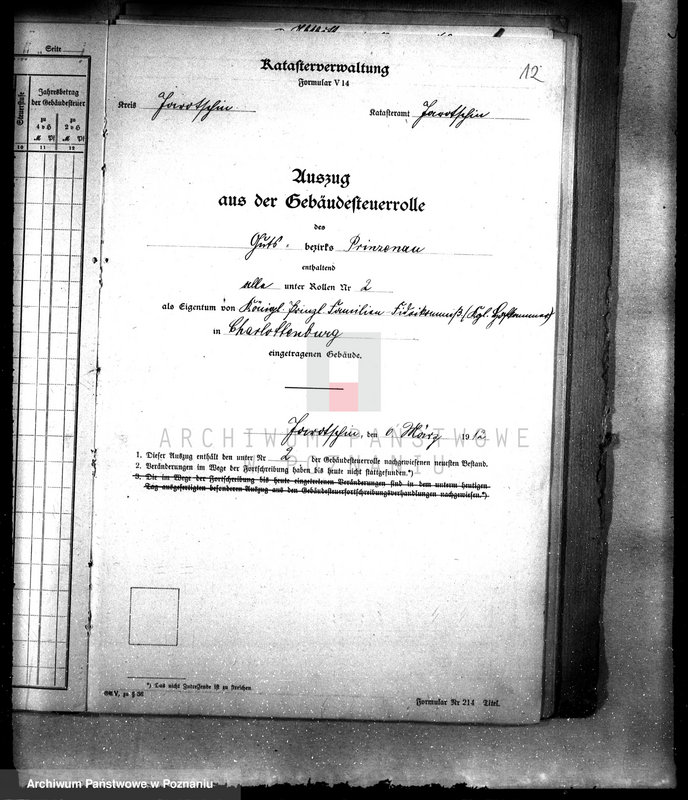 Seite
Steuerstufe
Jahresbetrag
der Gebäudesteuer
zu
4 v H
zu
2 v H
M Pf
M Pf
10 11 12
Katasterverwaltung
Formular V 14
12
Kreis Jarotschin
Katasteramt Jarotschin
Auszug
aus der Gebäudesteuerrolle
des
Guts- bezirks Prinzenau
enthaltend
alle unter Rollen Nr 2
als Eigentum von Königl. Prinzl. Familien Fideikommiß (Kgl. Hofkammer)
in Charlottenburg
eingetragenen Gebäude.
Jarotschin, den März 1912
ARCHIWUM PAŃSTWOWE
W POZNANIU
1. Dieser Auszug enthält den unter Nr 2 der Gebäudesteuerrolle nachgewiesenen neuesten Bestand.
2. Veränderungen im Wege der Fortschreibung haben bis heute nicht stattgefunden.*)
3. Die im Wege der Fortschreibung bis heute eingetretenen Veränderungen sind in dem unterm heutigen
Tag ausgefertigten besonderen Auszug aus den Gebäudesteuerfortschreibungsverhandlungen nachgewiesen.*)
*) Das nicht Zutreffende ist zu streichen.
GA V, zu § 36
Formular Nr 214 Titel.
Archiwum Państwowe w Poznaniu